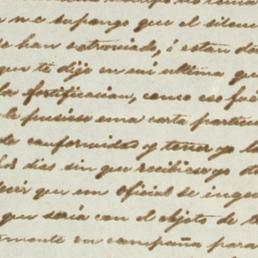 me supongo que el silen
se han estraviado, i estan de
que te dije en mi ultima que
la fortificacion, como eso fué
le pusiese una carta particu
de conformidad y tener yo la
los dias sin que recibiese yo
decir que un oficial se inge
que seria con el objeto de
tamente en campaña para